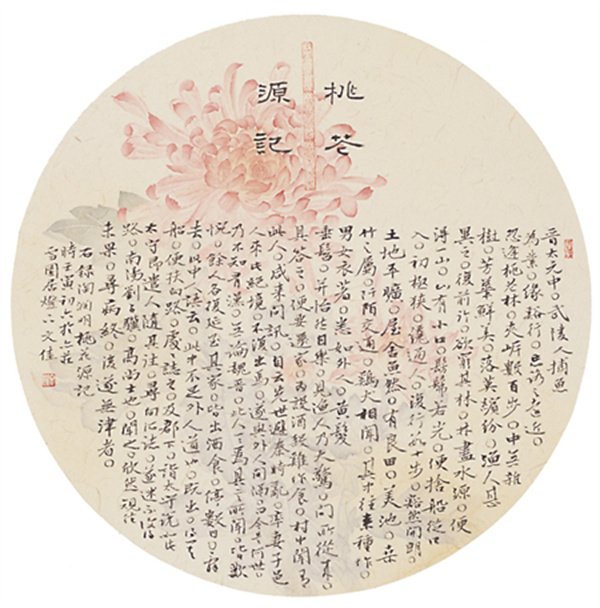 桃花
源記
晋太元中。武陵人捕魚
為業。緣谿行。忘路之遠近。
忽逢桃花林。夾岸數百步。中無雜
樹。芳華鮮美。落英繽紛。漁人甚
異之。復前行。欲窮其林。林盡水源。便
得一山。山有小口。髣髴若光。便捨船從口
入。初極狹。纔通人。復行數十步。豁然開朗。
土地平曠。屋舍儼然。有良田。美池。桑
竹之屬。阡陌交通。鷄犬相聞。其中往來種作。
男女衣著。悉如外人。黄髮
垂髫。并怡然自樂。見漁人乃大驚。問所從來。
具答之。便要還家。為設酒殺雞作食。村中聞有
此人。咸來問訊。自云先世避秦時亂。率妻子邑
人來此絕境。不復出焉。遂與外人間隔。問今是何世。
乃不知有漢。無論魏晉。此人一一為具言所聞。皆歎
惋。餘人各復延至其家。皆出酒食。停數日。辭
去。此中人語云。不足為外人道也。既出。得其
船。便扶向路。處處誌之。及郡下。詣太守說如此。
太守即遣人隨其往。尋向所誌。遂迷不復得
路。南陽劉子驥。高尚士也。聞之。欣然規往。
未果。尋病終。後遂無津者。
右錄陶淵明桃花源記
時壬寅初六於六莊
雪園居燈下文佳